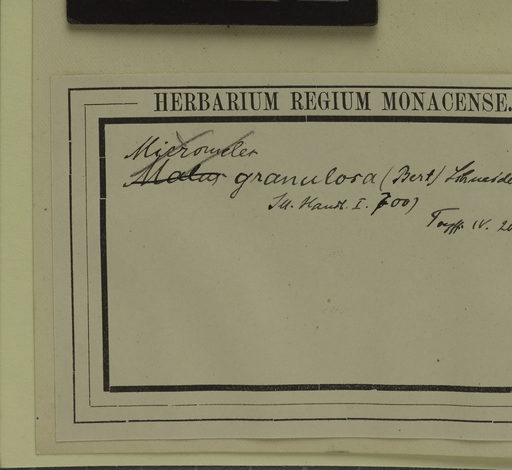 HERBARIUM REGIUM MONACENSE.
Micromeles
Malus granulosa (Bert) Schneide
Ill. Handb. I. 700)
IV. 20